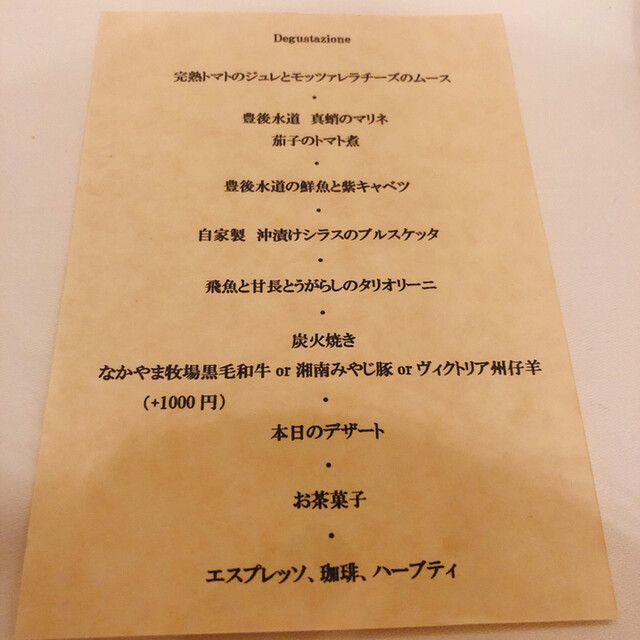 Degustazione
完熟トマトのジュレとモッツァレラチーズのムース
・
豊後水道　真蛸のマリネ
茄子のトマト煮
・
豊後水道の鮮魚と紫キャベツ
・
自家製　沖漬けシラスのブルスケッタ
・
飛魚と甘長とうがらしのタリオリーニ
・
炭火焼き
なかやま牧場黒毛和牛 or 湘南みやじ豚 or ヴィクトリア州仔羊
（+1000 円）
・
本日のデザート
・
お茶菓子
・
エスプレッソ、珈琲、ハーブティ